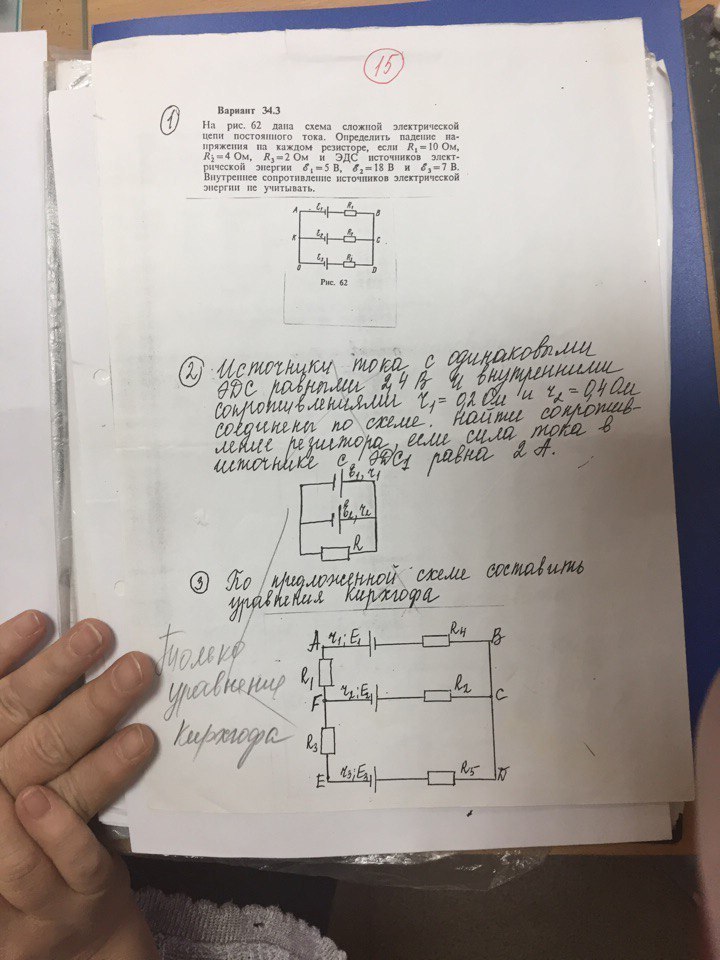 15
1
Вариант 34.3
На рис. 62 дана схема сложной электрической
цепи постоянного тока. Определить падение на-
пряжения на каждом резисторе, если R₁=10 Ом,
R₂=4 Ом, R₃=2 Ом и ЭДС источников элект-
рической энергии ℰ₁=5 В, ℰ₂=18 В и ℰ₃=7 В.
Внутреннее сопротивление источников электрической
энергии не учитывать.
A ℰ₁ R₁ B
K ℰ₂ R₂ C
O ℰ₃ R₃ D
Рис. 62
2 Источники тока с одинаковыми
ЭДС равными 2,4 В и внутренними
сопротивлениями r₁ = 0,2 Ом и r₂ = 0,4 Ом
соединены по схеме. Найти сопротив-
ление резистора, если сила тока в
источнике с ЭДС1 равна 2 А.
ℰ₁, r₁
ℰ₂, r₂
R
3 По предложенной схеме составить
уравнения Кирхгофа
Только
уравнение
Кирхгофа
A r₁; E₁ R₄ B
R₁
F r₂; E₂ R₂ C
R₃
E r₃; E₃ R₅ D